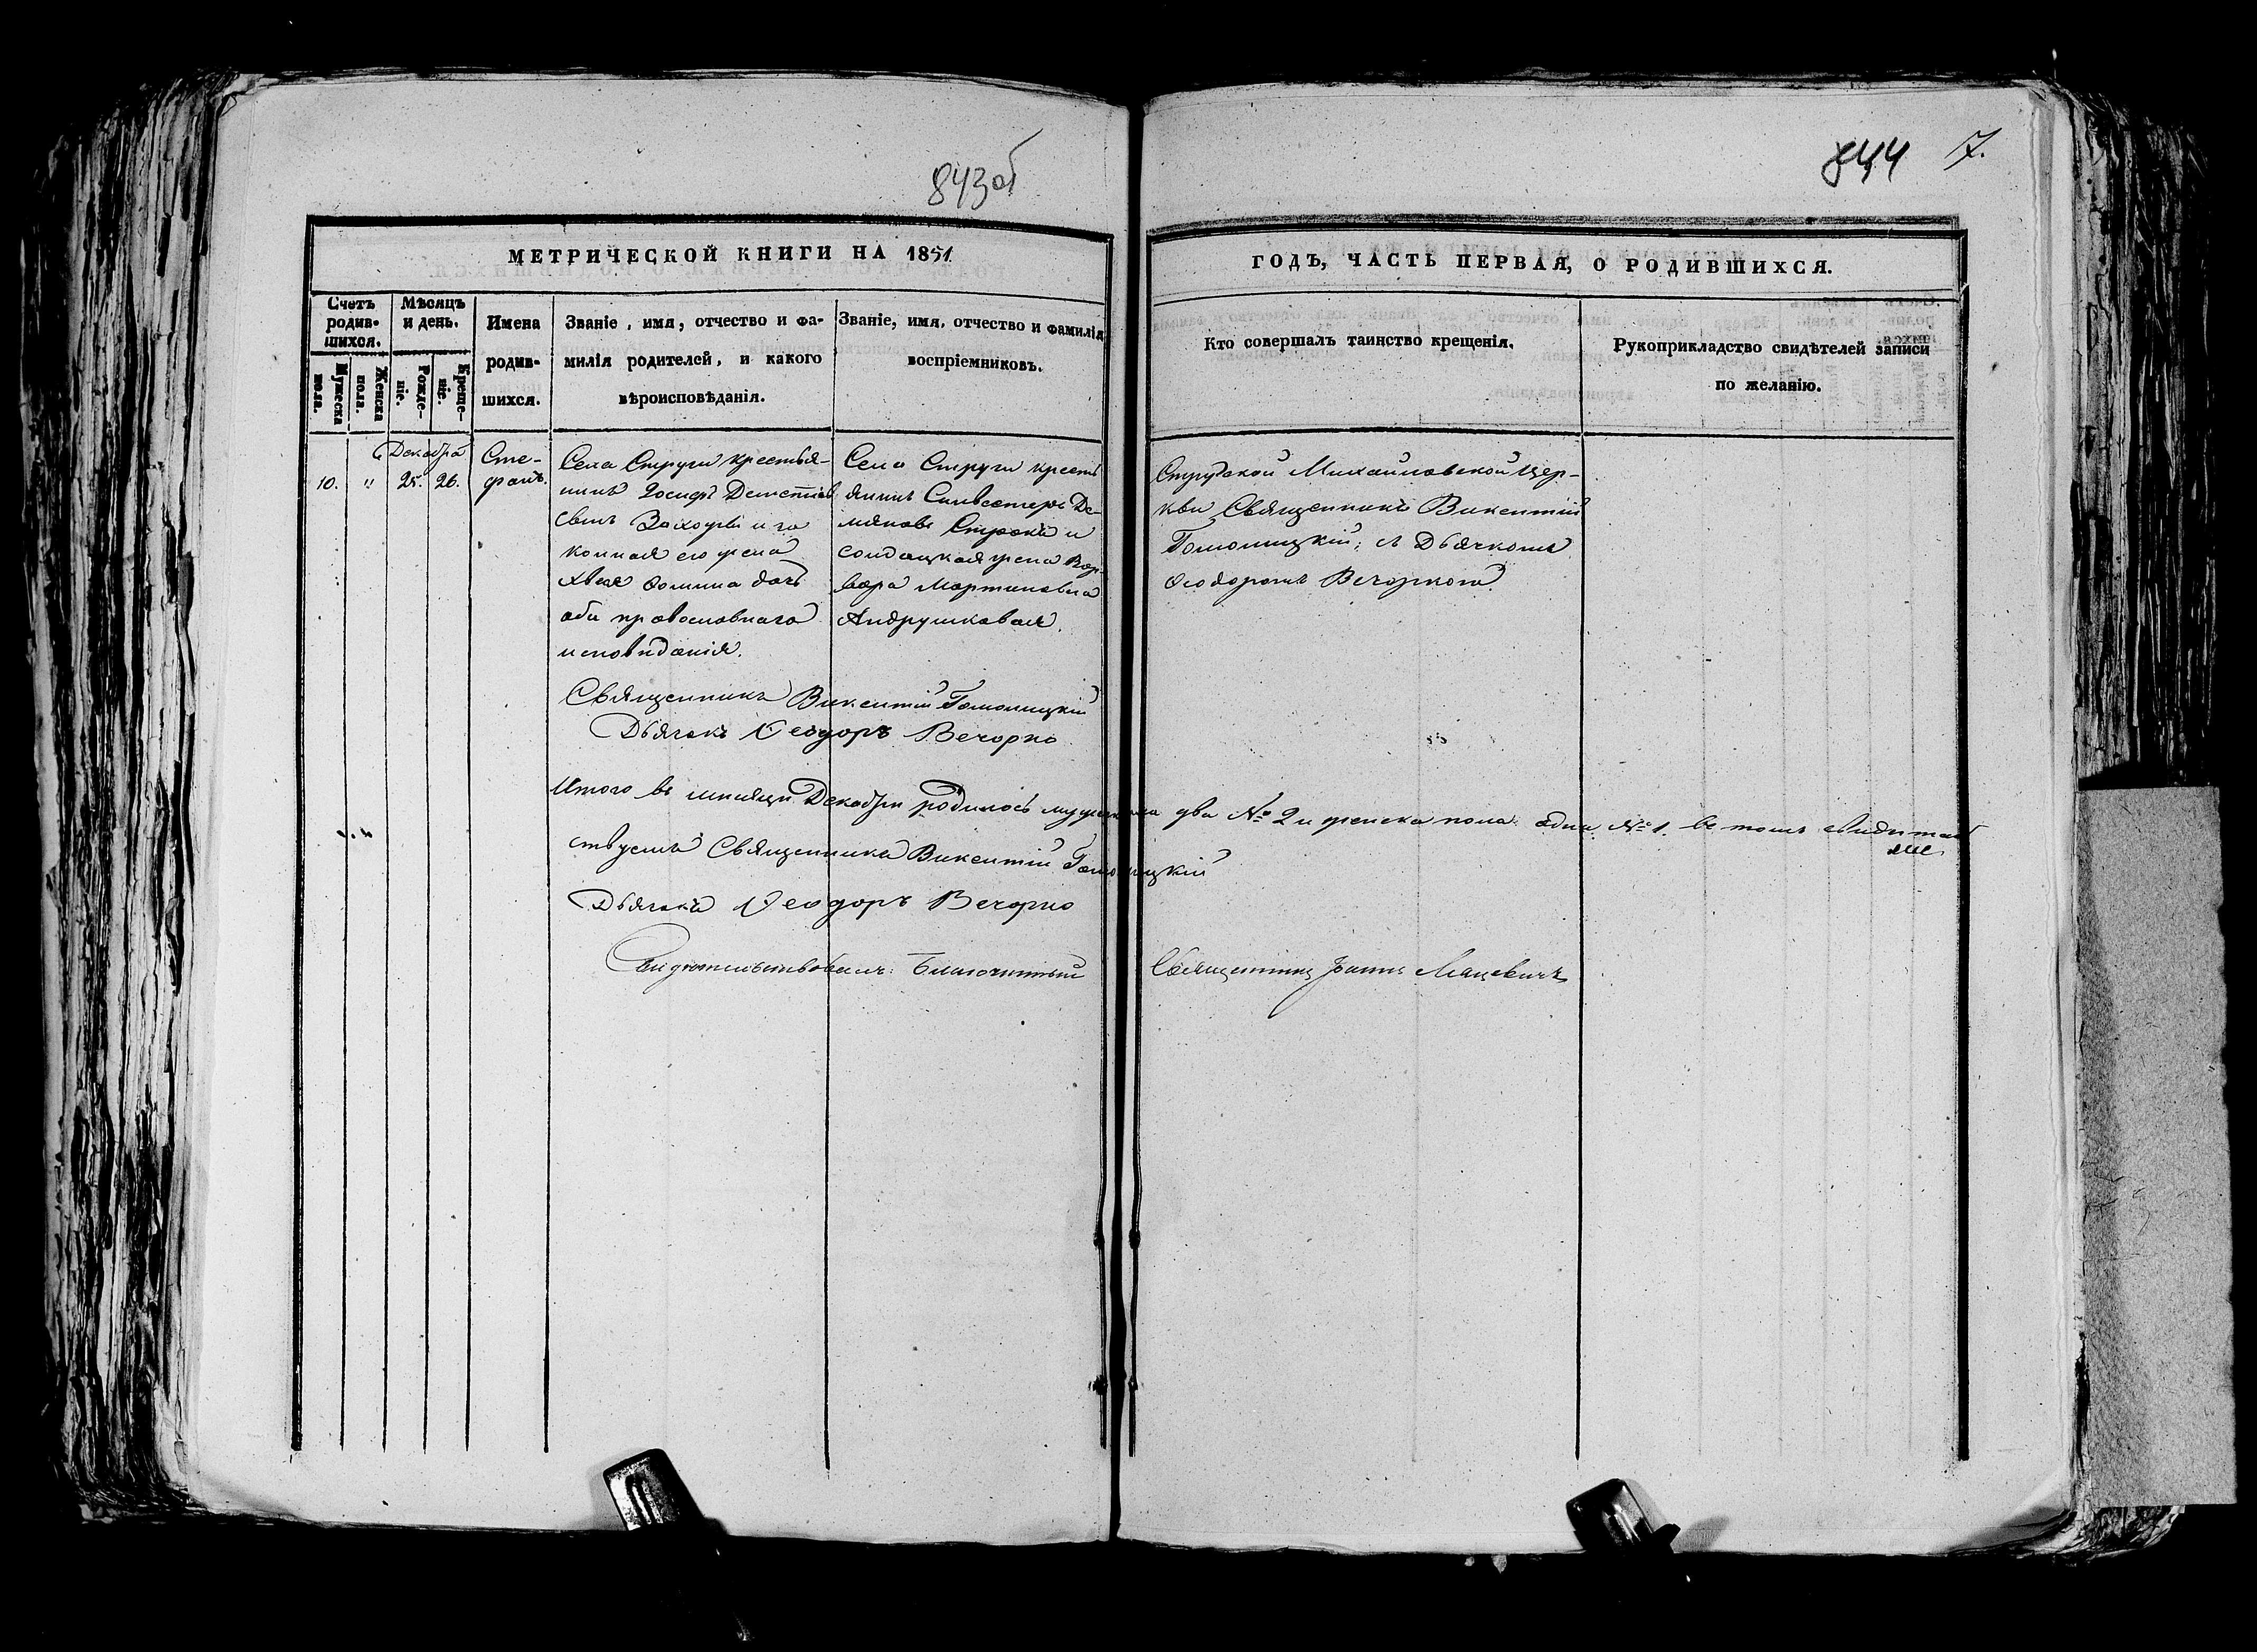 843об
844 7.
МЕТРИЧЕСКОЙ КНИГИ НА 1851
ГОДЪ, ЧАСТЬ ПЕРВАЯ, О РОДИВШИХСЯ.
Счетъ родив-
шихся.
Мужеска пола.
Женска пола.
Мѣсяцъ и день.
Рожде-
ніе.
Креще-
ніе.
Имена
родив-
шихся.
Званіе, имя, отчество и фа-
милія родителей, и какого
вѣроисповѣданія.
Званіе, имя, отчество и фамилія
воспріемниковъ.
Кто совершалъ таинство крещенія.
Рукоприкладство свидѣтелей записи
по желанію.
Декабра
10. " 25. 26.
Сте-
фанъ.
Села Струги крестья-
нинъ Іосифъ
и за
конная его жена
дочь
оба православнаго
исповѣданія.
Села Струги кресть
янинъ Сильвестеръ Де-
мяновъ Строкъ и
солдацкая жена Вар-
вара Мартиновна
Андрушковая.
Струзской Михайловской Цер-
кви Священникъ Викентий
Гомолицкій, съ Дьячкомъ
Феодоромъ Вечоркомъ.
Священникъ Викентій Гомолицкій
Дьячокъ Феодоръ Вечорко
Итого въ мнѣсяцѣ Декабрѣ родилось мужеска пола два № 2 и женска пола один № 1. въ томъ свидѣтель
ствуемъ Священникъ Викентій Гомолицкій
Дьячокъ Феодоръ Вечорко
Свидѣтельствовалъ: Благочинный Священникъ Іоаннъ Мацевичъ